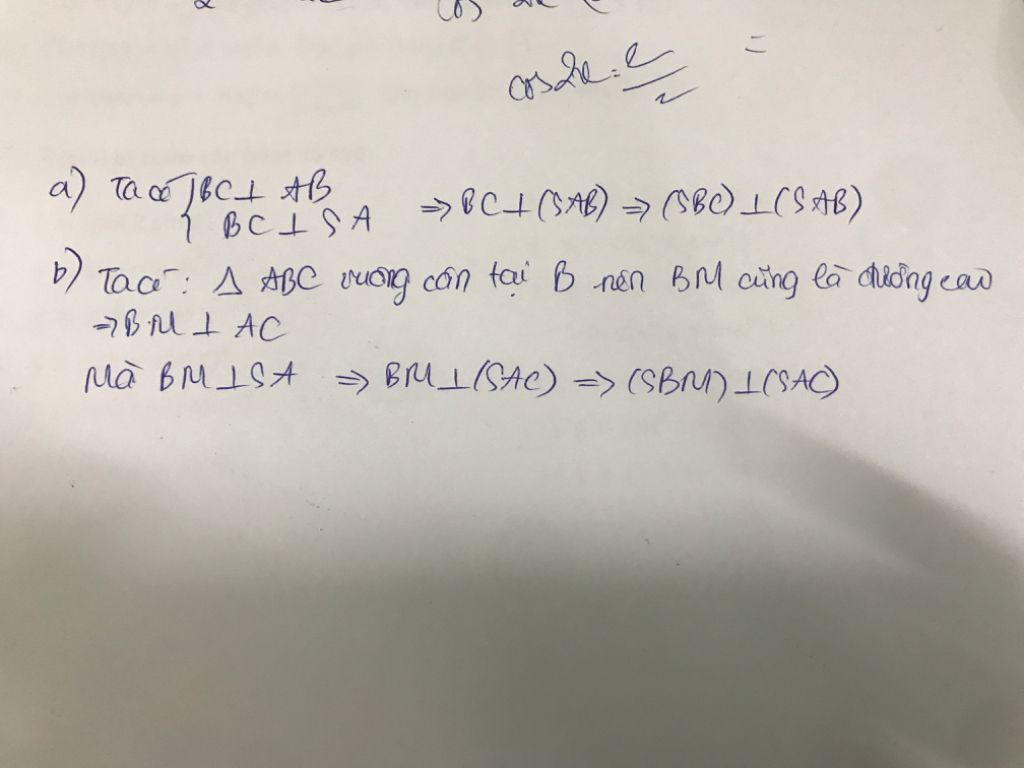 cos2x =
=
a) Ta có { BC ⊥ AB
BC ⊥ SA ⇒ BC ⊥ (SAB) ⇒ (SBC) ⊥ (SAB)
b) Ta có : Δ ABC vuông cân tại B nên BM cũng là đường cao
⇒ BM ⊥ AC
Mà BM ⊥ SA ⇒ BM ⊥ (SAC) ⇒ (SBM) ⊥ (SAC)